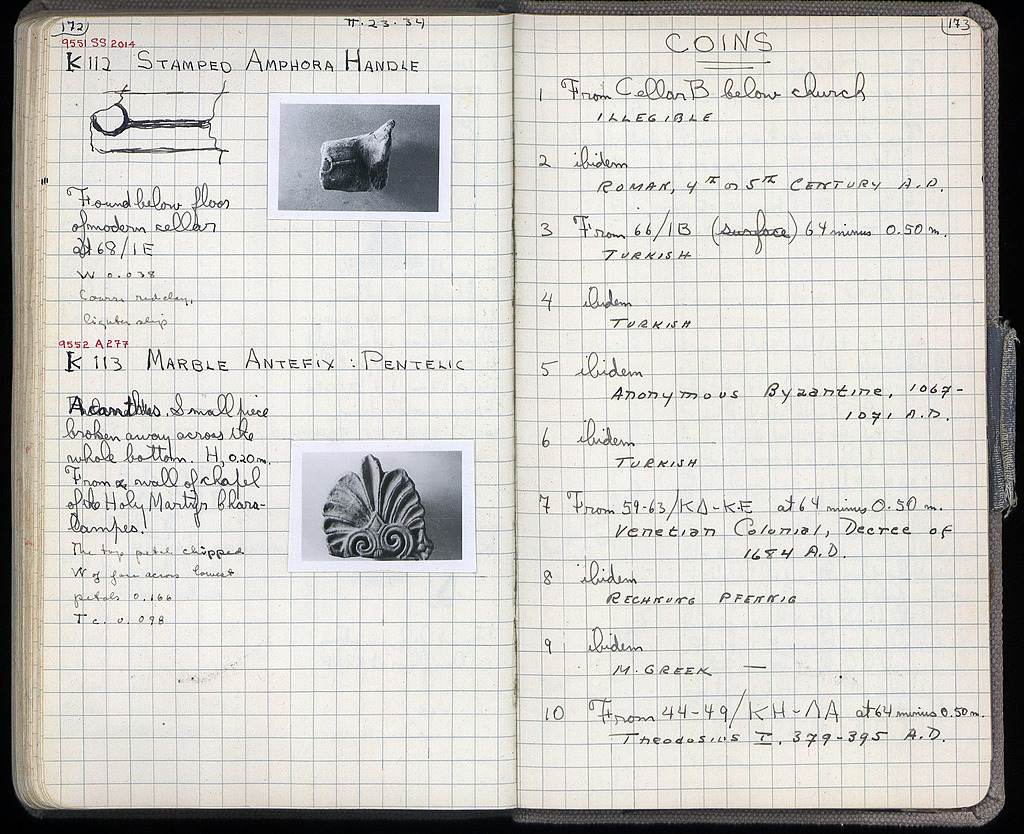 172
II·23·34
9551 SS 2014
K 112 STAMPED AMPHORA HANDLE
Found below floor
of modern cellar
at 68/IE
W 0.038
Coarse red clay,
lighter slip
9552 A 277
K 113 MARBLE ANTEFIX : PENTELIC
Acanthus. Small piece
broken away across the
whole bottom. H. 0.20 m.
From wall of chapel
of Holy Martyr Chara-
lampes!
The top petal chipped
W of face across lowest
petals 0.166
T c. 0.098
173
COINS
1 From Cellar B below church
ILLEGIBLE
2 ibidem
ROMAN, 4TH or 5TH CENTURY A.D.
3 From 66/IB (surface) 64 minus 0.50 m.
TURKISH
4 ibidem
TURKISH
5 ibidem
Anonymous Byzantine, 1067-
1071 A.D.
6 ibidem
TURKISH
7 From 59-63/ΚΔ-ΚΕ at 64 minus 0.50 m.
Venetian Colonial, Decree of
1684 A.D.
8 ibidem
RECHNUNG PFENNIG
9 ibidem
M. GREEK —
10 From 44-49/ΚΗ-ΛΑ at 64 minus 0.50 m.
Theodosius I, 379-395 A.D.